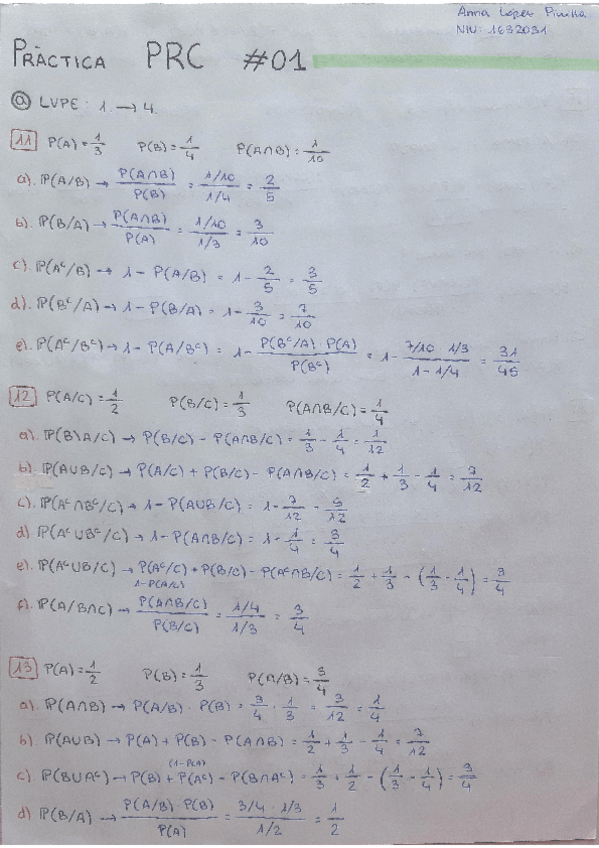 Anna López Pinilla
NIU: 1632031
PRÀCTICA PRC #01
@ LVPE: 1. → 4.
11 P(A) = 1/3 P(B) = 1/4 P(A∩B) = 1/10
a). P(A/B) → P(A∩B)/P(B) = (1/10)/(1/4) = 2/5
b). P(B/A) → P(A∩B)/P(A) = (1/10)/(1/3) = 3/10
c). P(Aᶜ/B) → 1 - P(A/B) = 1 - 2/5 = 3/5
d). P(Bᶜ/A) → 1 - P(B/A) = 1 - 3/10 = 7/10
e). P(Aᶜ/Bᶜ) → 1 - P(A/Bᶜ) = 1 - P(Bᶜ/A) · P(A)/P(Bᶜ) = 1 - (7/10 · 1/3)/(1 - 1/4) = 31/45
12 P(A/C) = 1/2 P(B/C) = 1/3 P(A∩B/C) = 1/4
a). P(B\A/C) → P(B/C) - P(A∩B/C) = 1/3 - 1/4 = 1/12
b). P(A∪B/C) → P(A/C) + P(B/C) - P(A∩B/C) = 1/2 + 1/3 - 1/4 = 7/12
c). P(Aᶜ∩Bᶜ/C) → 1 - P(A∪B/C) = 1 - 7/12 = 5/12
d). P(Aᶜ∪Bᶜ/C) → 1 - P(A∩B/C) = 1 - 1/4 = 3/4
e). P(Aᶜ∪B/C) → P(Aᶜ/C) + P(B/C) - P(Aᶜ∩B/C) = 1/2 + 1/3 - (1/3 - 1/4) = 3/4
1-P(A/C)
f). P(A/B∩C) → P(A∩B/C)/P(B/C) = (1/4)/(1/3) = 3/4
13 P(A) = 1/2 P(B) = 1/3 P(A/B) = 3/4
a). P(A∩B) → P(A/B) · P(B) = 3/4 · 1/3 = 3/12 = 1/4
b). P(A∪B) → P(A) + P(B) - P(A∩B) = 1/2 + 1/3 - 1/4 = 7/12
(1-P(A))
c). P(B∪Aᶜ) → P(B) + P(Aᶜ) - P(B∩Aᶜ) = 1/3 + 1/2 - (1/3 - 1/4) = 3/4
d). P(B/A) → P(A/B) · P(B)/P(A) = (3/4 · 1/3)/(1/2) = 1/2